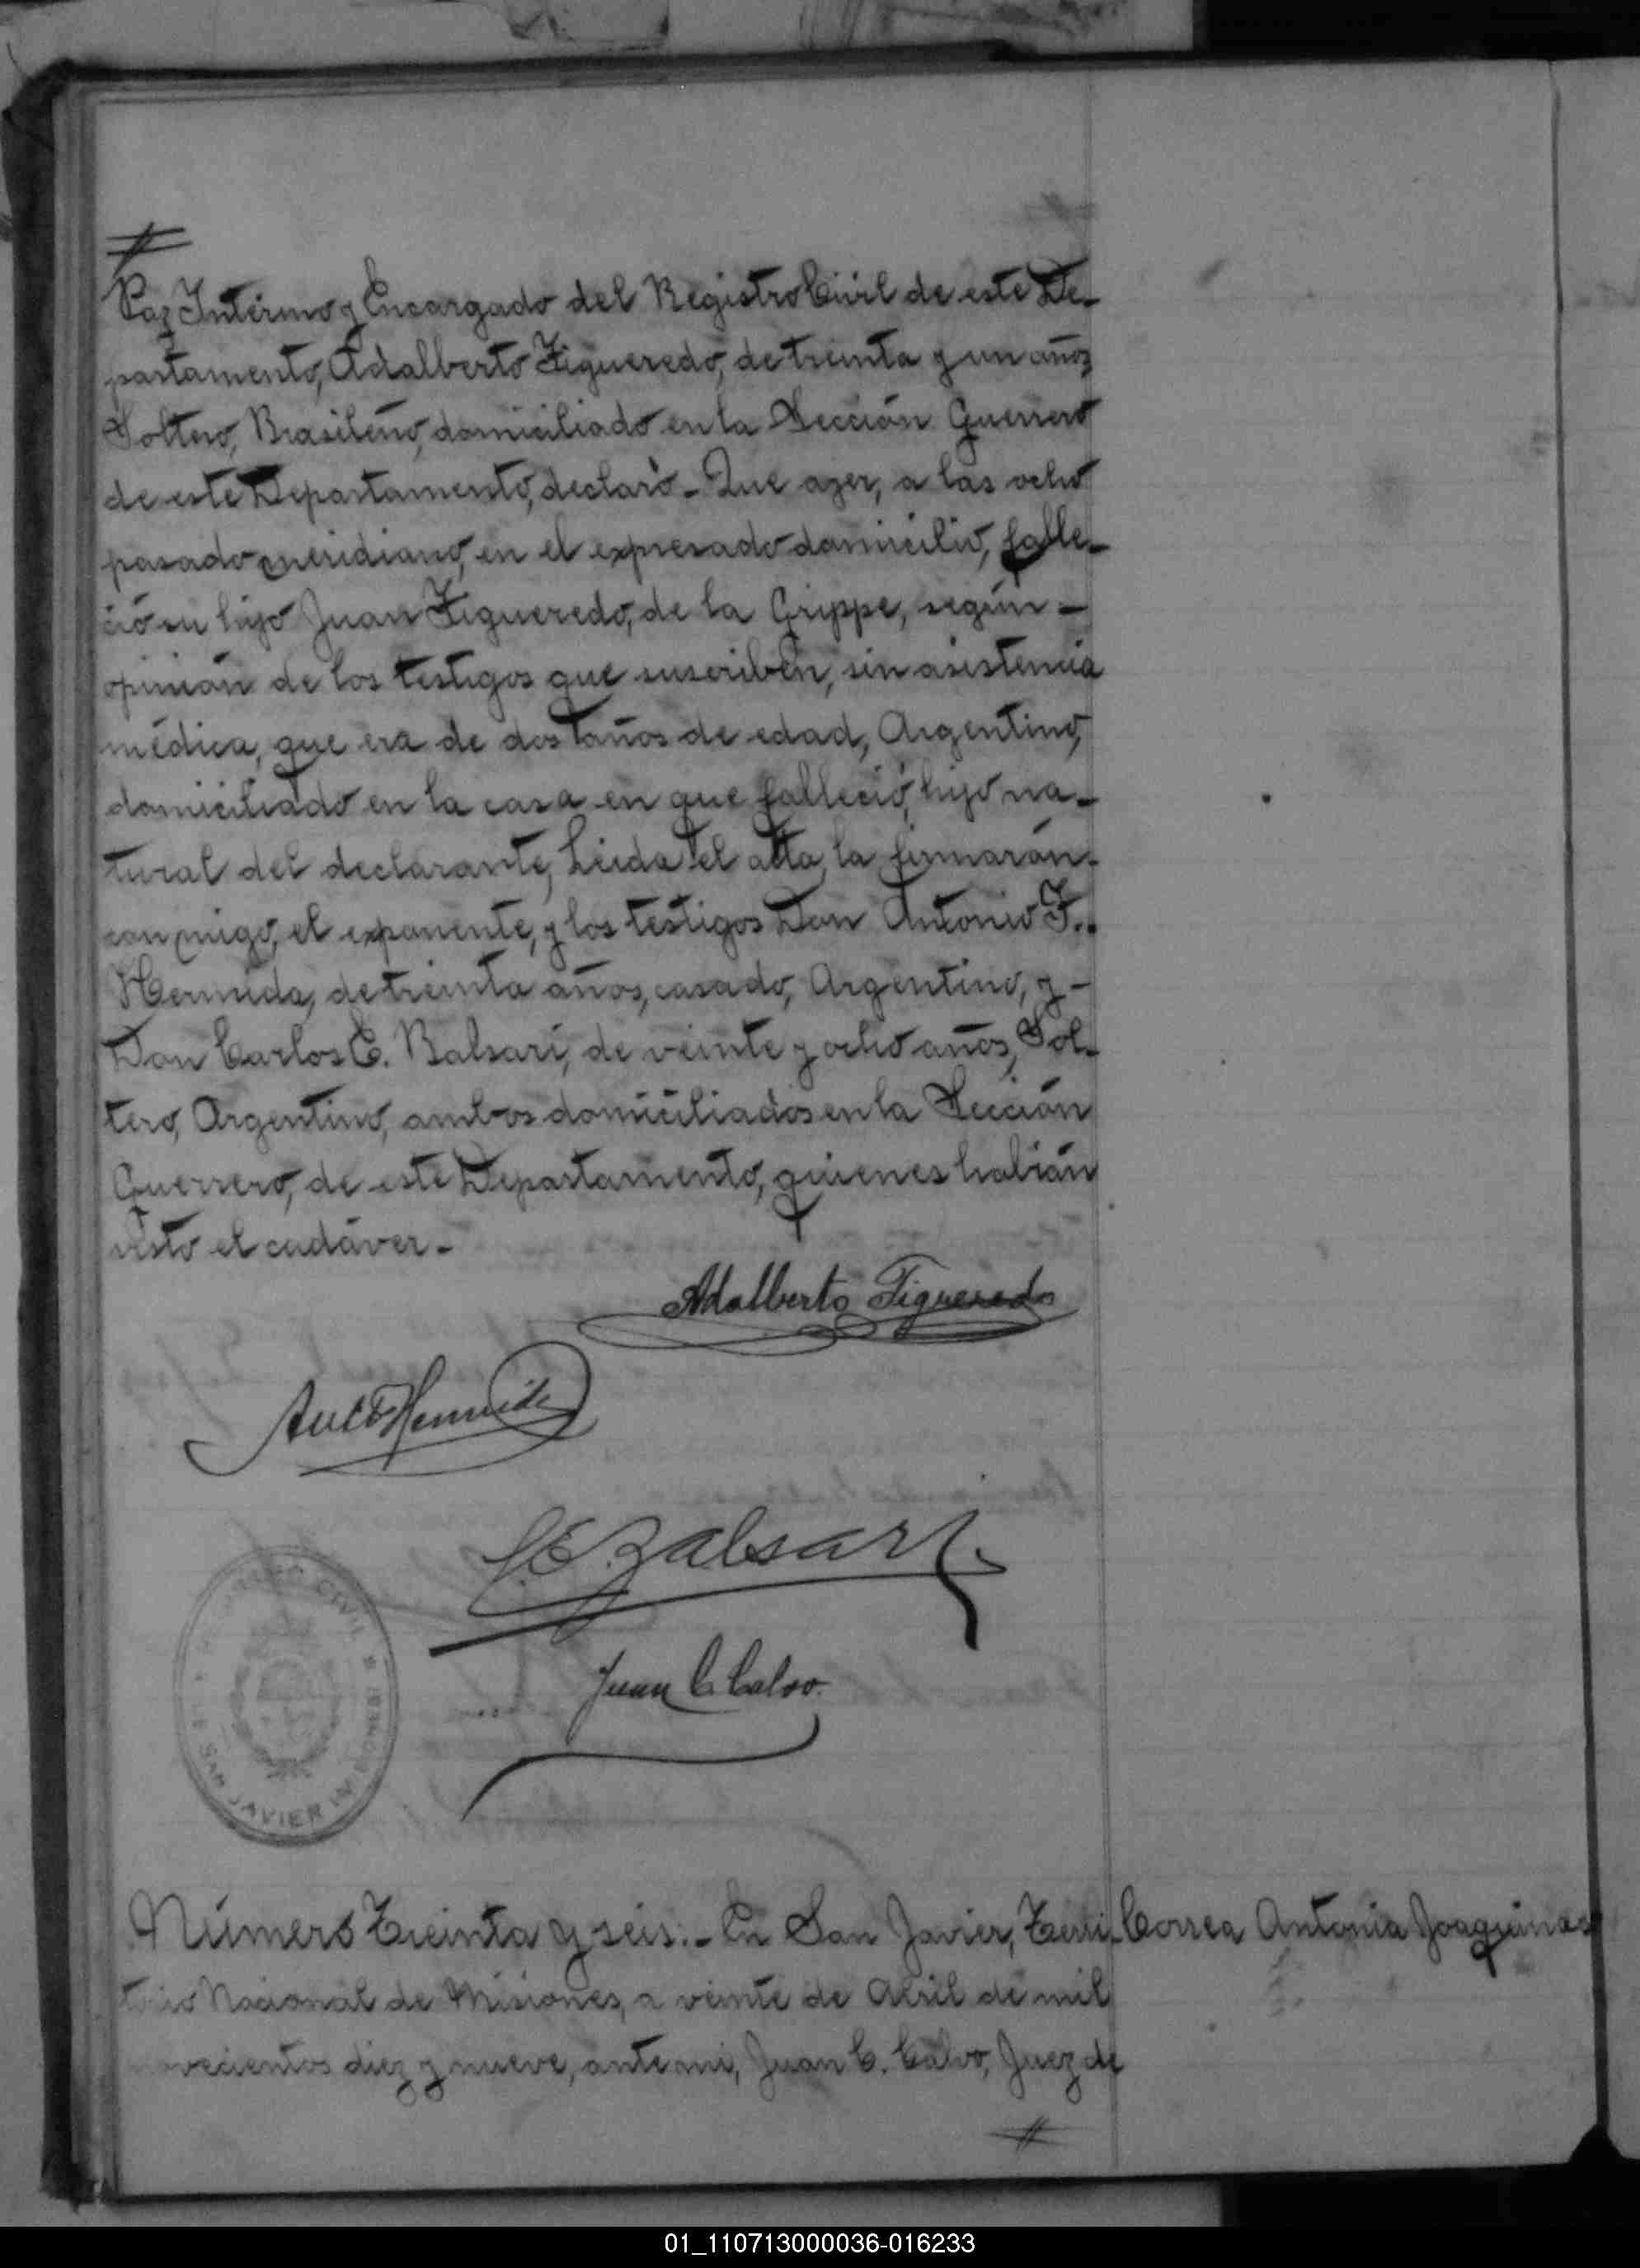 Paz Interino y Encargado del Registro Civil de este De-
partamento, Adalberto Figueredo, de treinta y un años,
Soltero, Brasileño, domiciliado en la Sección Guerrero
de este Departamento, declaró - Que ayer, a las ocho
pasado meridiano, en el expresado domicilio, falle-
ció su hijo Juan Figueredo, de la Grippe, según -
opinión de los testigos que suscriben, sin asistencia
médica, que era de dos años de edad, Argentino,
domiciliado en la casa en que falleció, hijo na-
tural del declarante, Leída el acta, la firmarón-
conmigo, el exponente, y los testigos Don Antonio F..
Hermida, de treinta años, casado, Argentino, y -
Don Carlos E. Balsari, de veinte y ocho años, Sol-
tero, Argentino, ambos domiciliados en la Sección
Guerrero, de este Departamento, quienes habián
visto el cadáver -
Adalberto Figueredo
Ant F Hermida
C.E. Balsari
Juan C. Calvo
REGISTRO CIVIL
SAN JAVIER MISIONES
Número Treinta y seis. - En San Javier, Terri- Correa Antonia Joaquina
torio Nacional de Misiones, a veinte de Abril de mil
novecientos diez y nueve, ante mi, Juan C. Calvo, Juez de
01_110713000036-016233